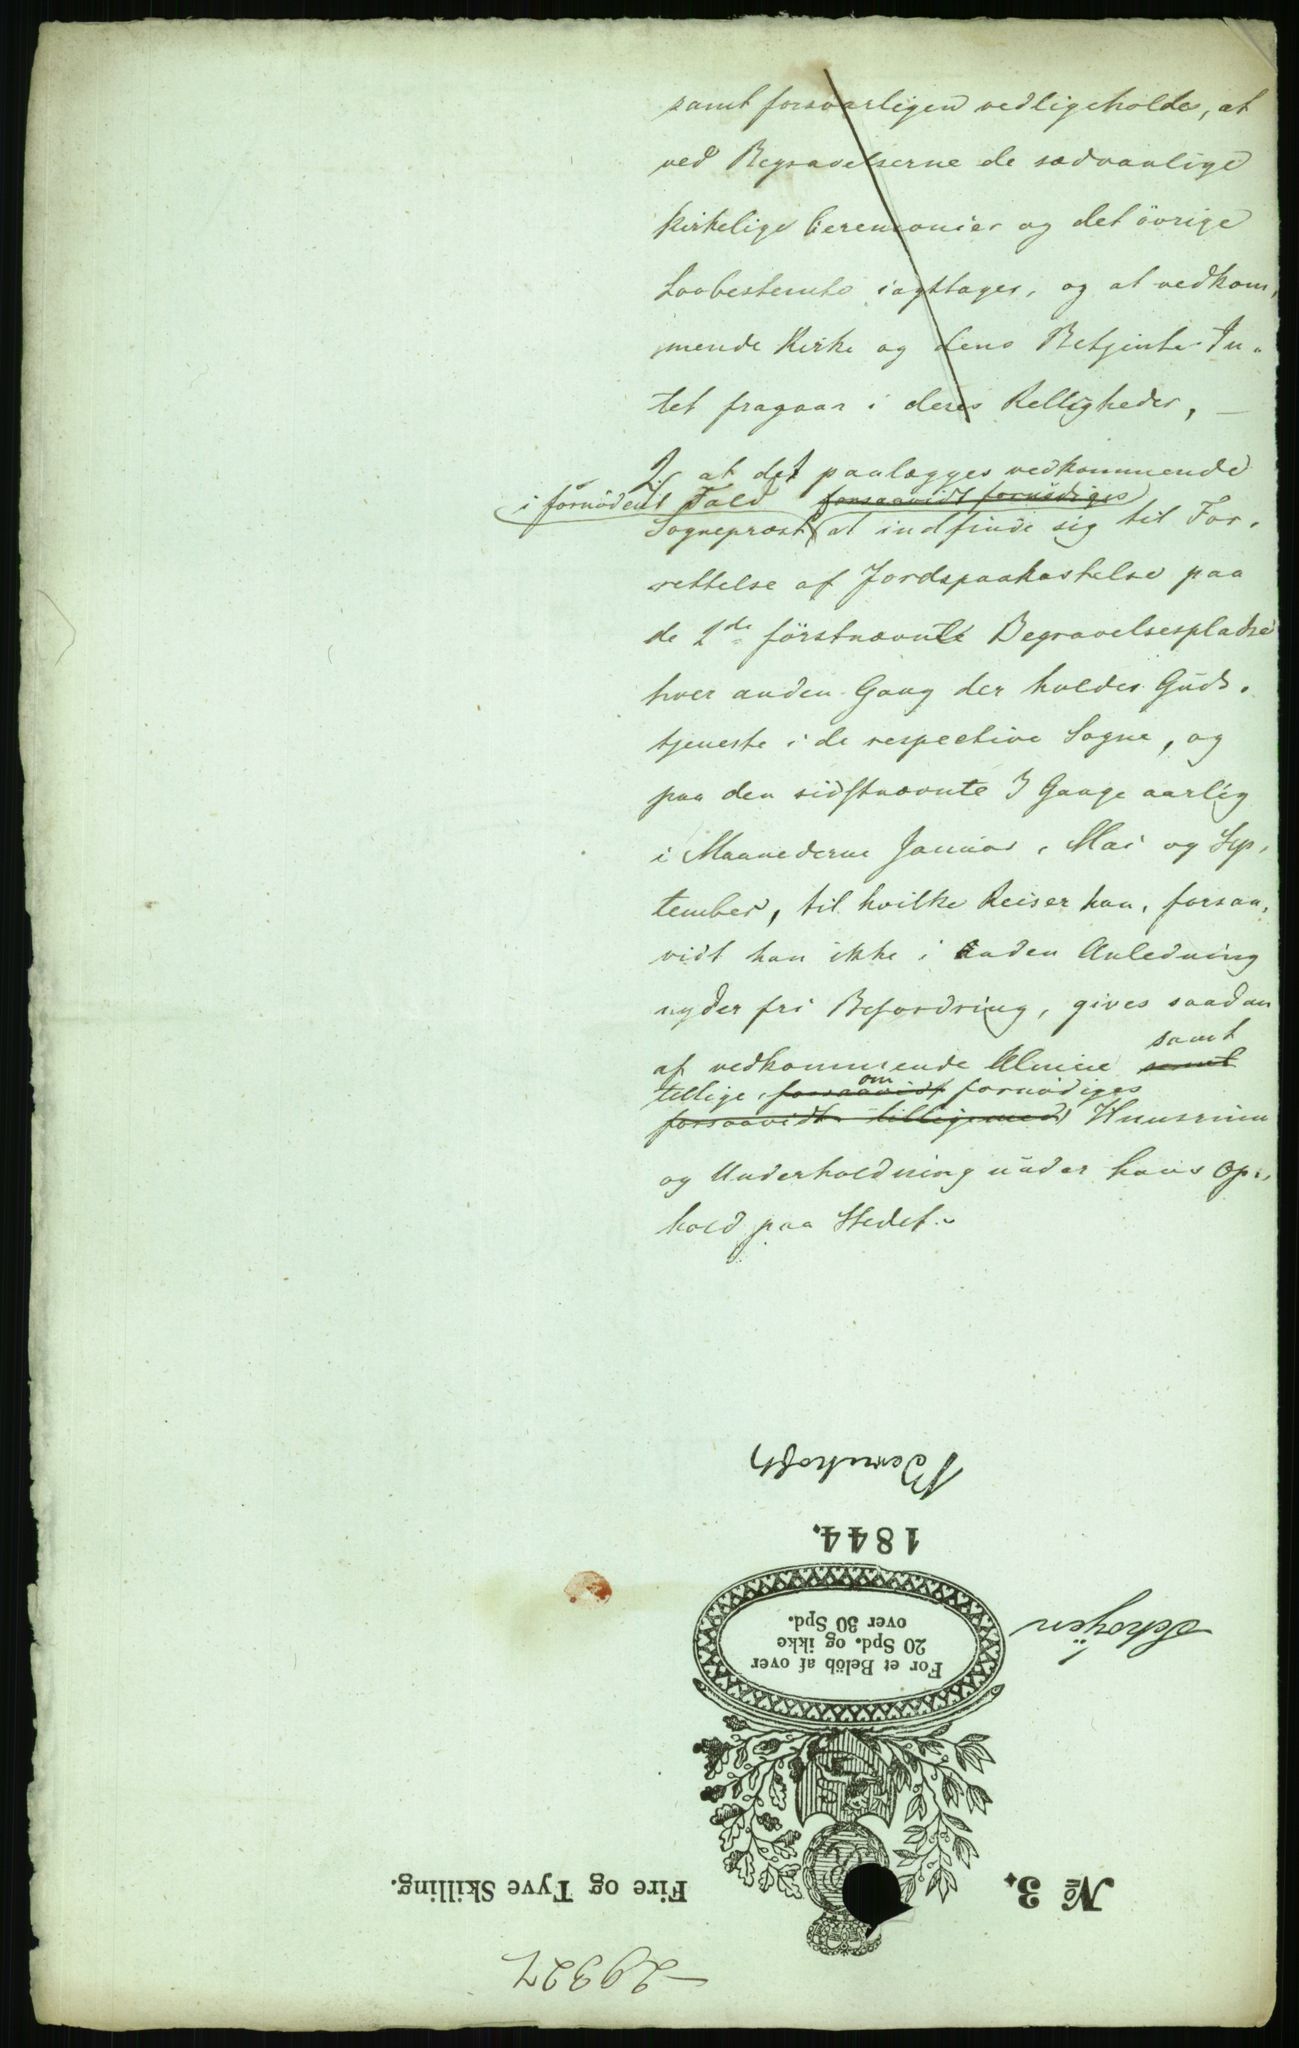 samt forsvarligen vedligeholdes, at
ved Begravelserne de sædvanlige
kirkelige Ceremonier og det övrige
Lovbestemte iagttages, og at vedkom,
mende Kirke og dens Betjente In,
tet fragaar i deres Rettigheder, —
2, at det paalægges vedkommende
i fornödent Fald forsaavidt fornödiges
Sognepræst at indfinde sig til For,
rettelse af Jordspaakastelse paa
de 2de förstnævnte Begravelsespladse
hver anden Gang der holdes Guds,
tjeneste i de respective Sogne, og
paa den sidstnævnte 3 Gange aarlig
i Maanederne Januar, Mai og Sep,
tember, til hvilke Reiser han, forsaa,
vidt han ikke i anden Anledning
nyder fri Befordring, gives saadan
samt
af vedkommende Almue samt
om
tillige, forsaavidt fornödiges
forsaavidt tilligemed Huusrum
og Underholdning under hans Op,
hold paa Stedet.
29327
No 3.
Fire og Tyve Skilling.
For et Belöb af over
20 Spd. og ikke
over 30 Spd.
Schöyen
1844.